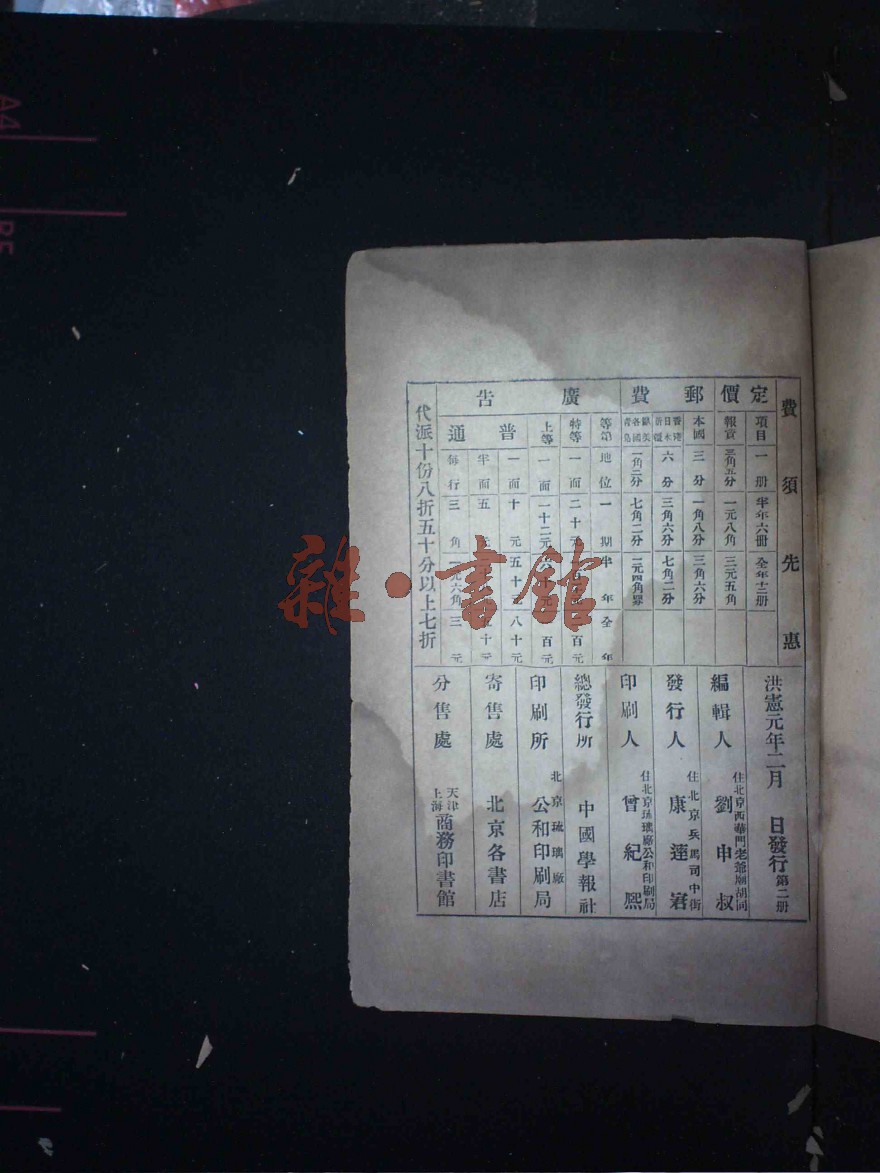 費須先惠
定價
郵費
廣告
項目 一册 半年六册 全年十二册
報資 三角五分 一元八角 三元五角
本國 三分 一角八分 三角六分
六分 三角六分 七角二分
一角二分 七角二分
等第 地位 一期 半年 全年
特等 一面 二十元 百元
上等 一面 一十二元 百元
普通
一面 十元 八十元
半面 五
每行 三角 一元六角 三元
代派十份八折五十分以上七折
洪憲元年二月 日發行 第二册
編輯人 劉申叔 住北京西華門老爺廟胡同
發行人 康逵窘 住北京兵馬司中街
印刷人 曾紀熙 住北京琉璃廠公和印刷局
總發行所 中國學報社
印刷所 北京琉璃廠 公和印刷局
寄售處 北京各書店
分售處 天津 上海 商務印書館
雜·書館
A4